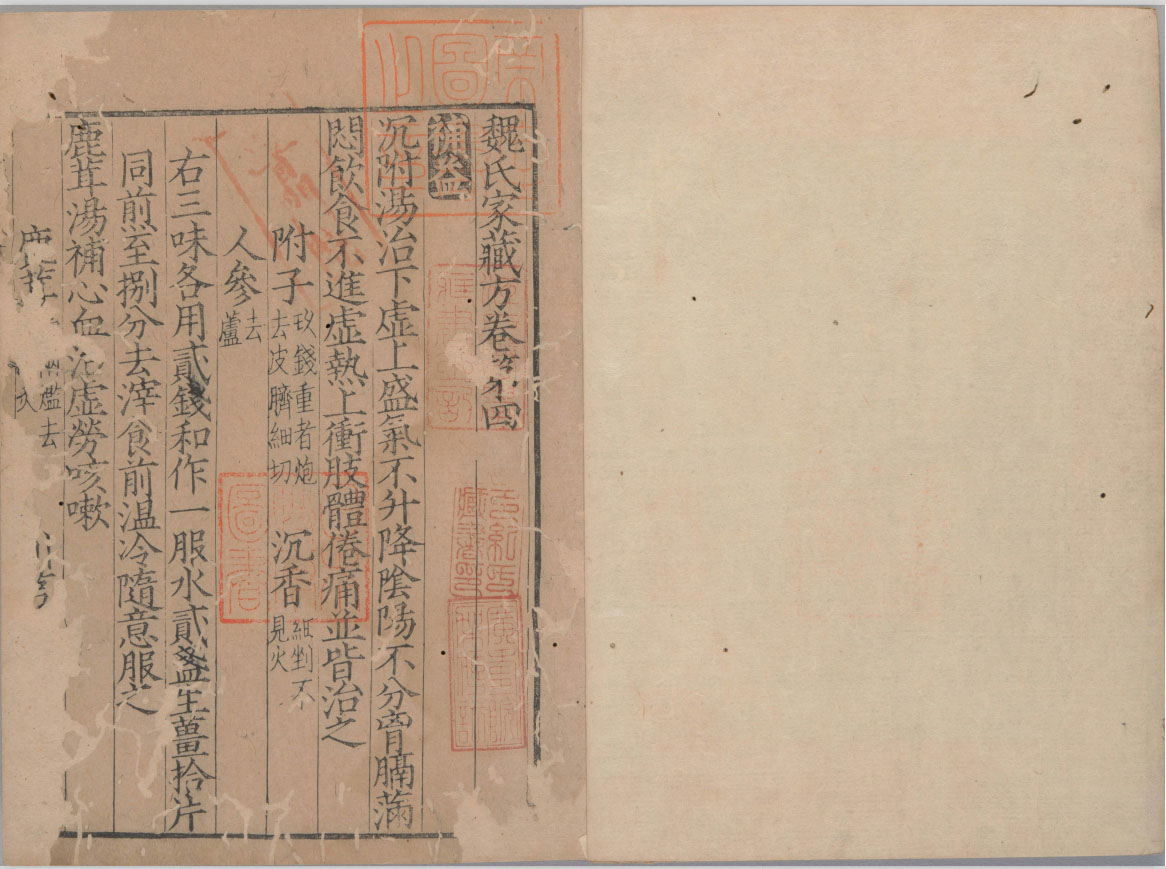 魏氏家藏方卷第四
補益
沉附湯治下虛上盛氣不升降陰陽不分胷膈滿
悶飲食不進虛熱上衝肢體倦痛並皆治之
附子玖錢重者炮去皮臍細切 沉香細剉不見火
人參去蘆
右三味各用貳錢和作一服水貳盞生薑拾片
同煎至捌分去滓食前温冷隨意服之
鹿茸湯補心血治虛勞咳嗽
鹿茸 去
圖書